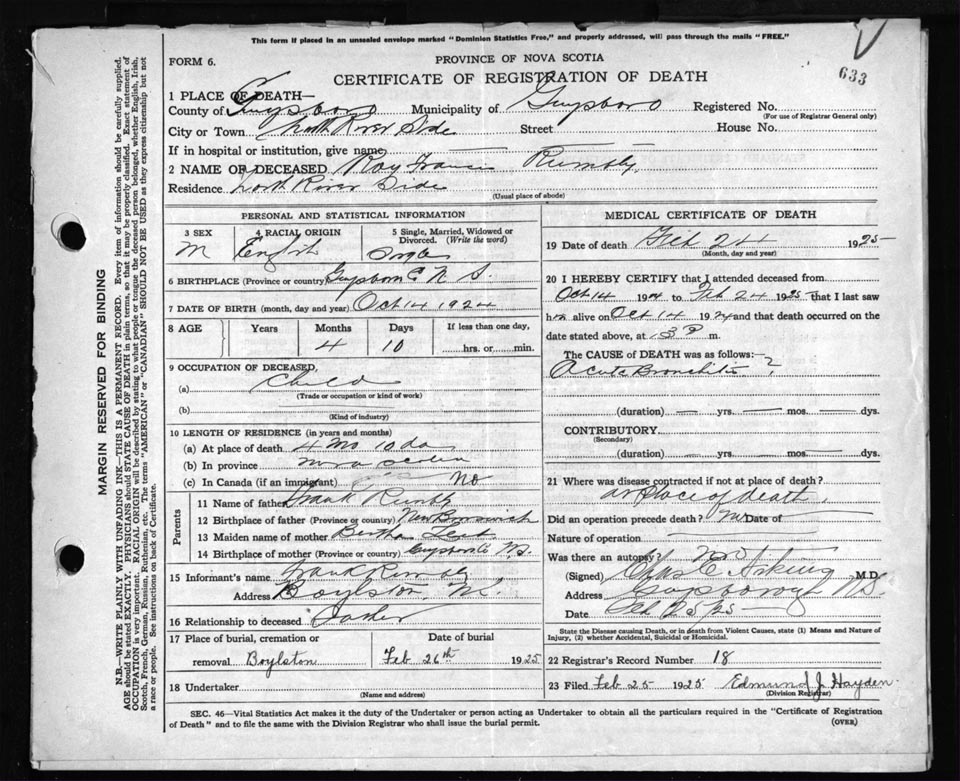 This form if placed in an unsealed envelope marked "Dominion Statistics Free," and properly addressed, will pass through the mails "FREE."
FORM 6.
PROVINCE OF NOVA SCOTIA
633
CERTIFICATE OF REGISTRATION OF DEATH
1 PLACE OF DEATH—
County of Guysboro Municipality of Guysboro Registered No.
(For use of Registrar General only)
City or Town North River Side Street House No.
If in hospital or institution, give name
2 NAME OF DECEASED Ray Francis Rumbly
Residence North River Side
(Usual place of abode)
PERSONAL AND STATISTICAL INFORMATION
3 SEX 4 RACIAL ORIGIN 5 Single, Married, Widowed or Divorced. (Write the word)
M English Single
6 BIRTHPLACE (Province or country) Guysboro N S.
7 DATE OF BIRTH (month, day and year) Oct 14 1924
8 AGE Years Months Days If less than one day,
4 10 hrs. or min.
9 OCCUPATION OF DECEASED,
(a) Child
(Trade or occupation or kind of work)
(b)
(Kind of industry)
10 LENGTH OF RESIDENCE (in years and months)
(a) At place of death 4 Mo 10 da
(b) In province
(c) In Canada (if an immigrant) No
Parents
11 Name of father Frank Rumbly
12 Birthplace of father (Province or country) New Brunswick
13 Maiden name of mother Bertha
14 Birthplace of mother (Province or country) Guysboro N.S.
15 Informant's name Frank Rumbly
Address Boylston, N.S.
16 Relationship to deceased Father
17 Place of burial, cremation or Date of burial
removal Boylston Feb 26th 1925
18 Undertaker
(Name and address)
MEDICAL CERTIFICATE OF DEATH
19 Date of death Feb 24 1925
(Month, day and year)
20 I HEREBY CERTIFY that I attended deceased from
Oct 14 1924 to Feb 24 1925 that I last saw
him alive on Oct 14 1924 and that death occurred on the
date stated above, at 3 P m.
The CAUSE of DEATH was as follows:
Acute Bronchitis ?
(duration) yrs. mos. dys.
CONTRIBUTORY
(Secondary)
(duration) yrs. mos. dys.
21 Where was disease contracted if not at place of death?
at place of death
Did an operation precede death? No Date of
Nature of operation
Was there an autopsy No
(Signed) Chas C M.D.
Address Guysborough NS.
Date Feb 25/25
State the Disease causing Death, or in death from Violent Causes, state (1) Means and Nature of
Injury, (2) whether Accidental, Suicidal or Homicidal.
22 Registrar's Record Number 18
23 Filed Feb 25 1925 Edmund J. Hayden
(Division Registrar)
SEC. 46—Vital Statistics Act makes it the duty of the Undertaker or person acting as Undertaker to obtain all the particulars required in the "Certificate of Registration
of Death" and to file the same with the Division Registrar who shall issue the burial permit. (OVER)
MARGIN RESERVED FOR BINDING
N.B.—WRITE PLAINLY WITH UNFADING INK—THIS IS A PERMANENT RECORD. Every item of information should be carefully supplied.
AGE should be stated EXACTLY. PHYSICIANS should STATE CAUSE OF DEATH in plain terms, so that it may be properly classified. Exact statement of
OCCUPATION is very important. RACIAL ORIGIN will be described by stating to what people or tongue the deceased person belonged, whether English, Irish,
Scotch, French, German, Russian, Ruthenian, etc. The terms "AMERICAN" or "CANADIAN" SHOULD NOT BE USED as they express citizenship but not
a race or people. See instructions on back of Certificate.